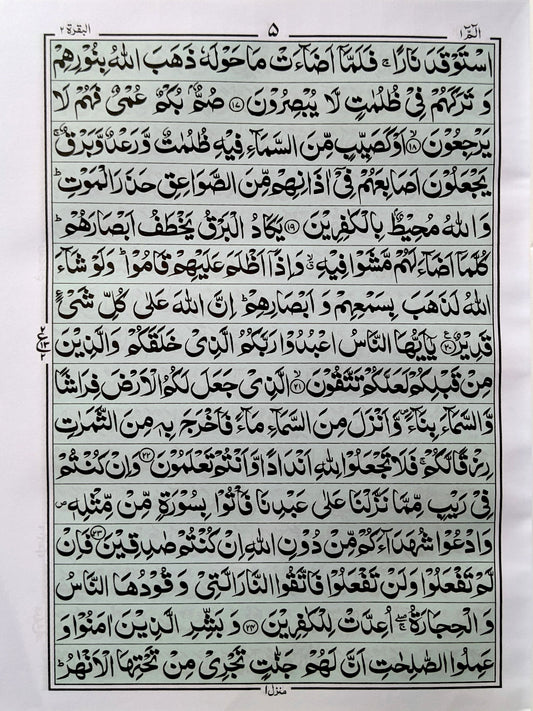 الٓمّٓ ۱ ۵ البقرة ۲
اسْتَوْقَدَ نَارًا ۚ فَلَمَّاۤ اَضَآءَتْ مَا حَوْلَهٗ ذَهَبَ اللّٰهُ بِنُوْرِهِمْ
وَ تَرَكَهُمْ فِیْ ظُلُمٰتٍ لَّا یُبْصِرُوْنَ ﴿۱۷﴾ صُمٌّۢ بُكْمٌ عُمْیٌ فَهُمْ لَا
یَرْجِعُوْنَ ﴿۱۸﴾ اَوْ كَصَیِّبٍ مِّنَ السَّمَآءِ فِیْهِ ظُلُمٰتٌ وَّ رَعْدٌ وَّ بَرْقٌ ۚ
یَجْعَلُوْنَ اَصَابِعَهُمْ فِیْۤ اٰذَانِهِمْ مِّنَ الصَّوَاعِقِ حَذَرَ الْمَوْتِ ؕ
وَ اللّٰهُ مُحِیْطٌۢ بِالْكٰفِرِیْنَ ﴿۱۹﴾ یَكَادُ الْبَرْقُ یَخْطَفُ اَبْصَارَهُمْ ؕ
كُلَّمَاۤ اَضَآءَ لَهُمْ مَّشَوْا فِیْهِ ۙ وَ اِذَاۤ اَظْلَمَ عَلَیْهِمْ قَامُوْا ؕ وَ لَوْ شَآءَ
اللّٰهُ لَذَهَبَ بِسَمْعِهِمْ وَ اَبْصَارِهِمْ ؕ اِنَّ اللّٰهَ عَلٰی كُلِّ شَیْءٍ
قَدِیْرٌ ﴿۲۰﴾ یٰۤاَیُّهَا النَّاسُ اعْبُدُوْا رَبَّكُمُ الَّذِیْ خَلَقَكُمْ وَ الَّذِیْنَ
مِنْ قَبْلِكُمْ لَعَلَّكُمْ تَتَّقُوْنَ ﴿۲۱﴾ الَّذِیْ جَعَلَ لَكُمُ الْاَرْضَ فِرَاشًا
وَّ السَّمَآءَ بِنَآءً ۪ وَّ اَنْزَلَ مِنَ السَّمَآءِ مَآءً فَاَخْرَجَ بِهٖ مِنَ الثَّمَرٰتِ
رِزْقًا لَّكُمْ ۚ فَلَا تَجْعَلُوْا لِلّٰهِ اَنْدَادًا وَّ اَنْتُمْ تَعْلَمُوْنَ ﴿۲۲﴾ وَ اِنْ كُنْتُمْ
فِیْ رَیْبٍ مِّمَّا نَزَّلْنَا عَلٰی عَبْدِنَا فَاْتُوْا بِسُوْرَةٍ مِّنْ مِّثْلِهٖ ۪
وَ ادْعُوْا شُهَدَآءَكُمْ مِّنْ دُوْنِ اللّٰهِ اِنْ كُنْتُمْ صٰدِقِیْنَ ﴿۲۳﴾ فَاِنْ
لَّمْ تَفْعَلُوْا وَ لَنْ تَفْعَلُوْا فَاتَّقُوا النَّارَ الَّتِیْ وَ قُوْدُهَا النَّاسُ
وَ الْحِجَارَةُ ۚۖ اُعِدَّتْ لِلْكٰفِرِیْنَ ﴿۲۴﴾ وَ بَشِّرِ الَّذِیْنَ اٰمَنُوْا وَ
عَمِلُوا الصّٰلِحٰتِ اَنَّ لَهُمْ جَنّٰتٍ تَجْرِیْ مِنْ تَحْتِهَا الْاَنْهٰرُ ؕ
۲
ع
۱۳
۲
منزل ۱